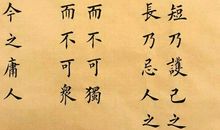 短乃護己之
長乃忌人之
而不可獨
而不可衆
今之庸人